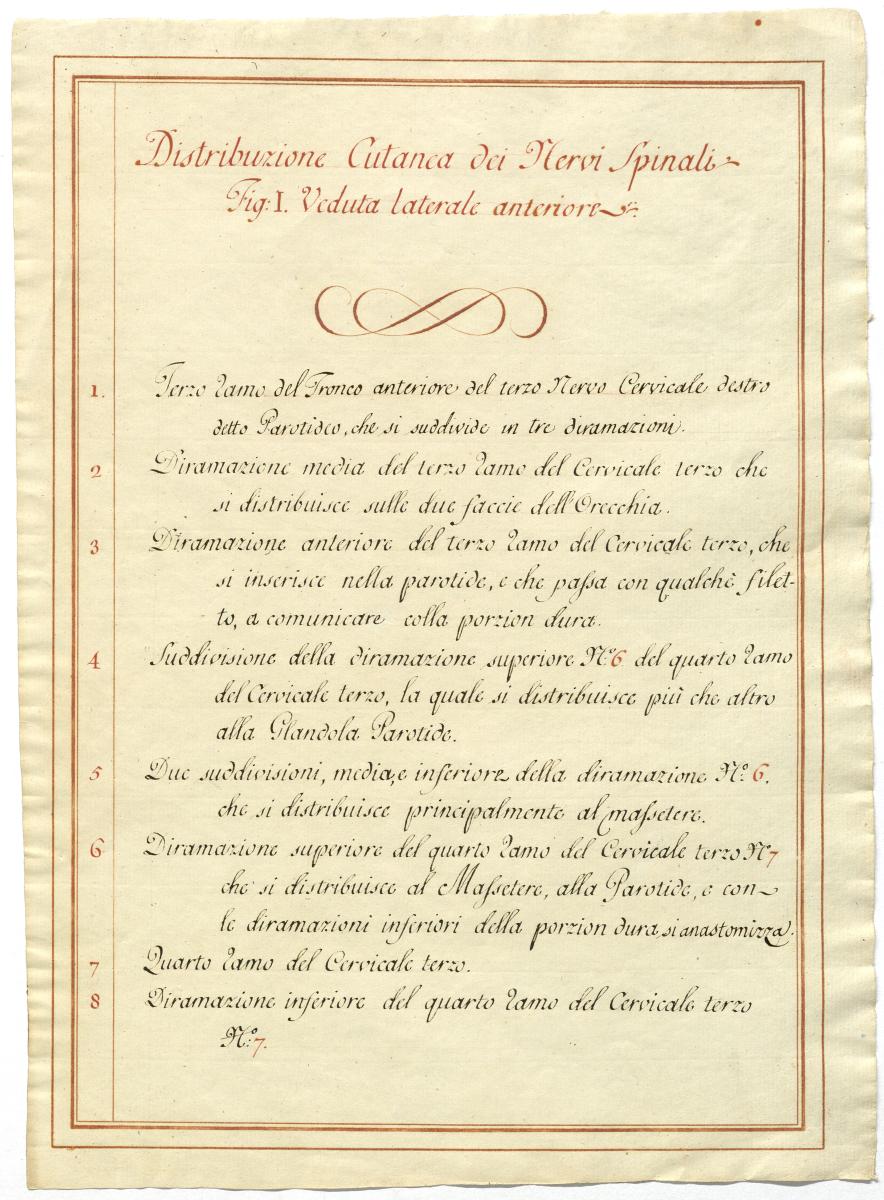 Distribuzione Cutanea dei Nervi Spinali
Fig: I. Veduta laterale anteriore
1. Terzo ramo del Tronco anteriore del terzo Nervo Cervicale destro
detto Parotideo, che si suddivide in tre diramazioni.
2 Diramazione media del terzo ramo del Cervicale terzo che
si distribuisce sulle due faccie dell'Orecchia.
3 Diramazione anteriore del terzo ramo del Cervicale terzo, che
si inserisce nella parotide, e che passa con qualchè filet-
to, a comunicare colla porzion dura.
4 Suddivisione della diramazione superiore N.º 6 del quarto ramo
del Cervicale terzo, la quale si distribuisce più che altro
alla Glandola Parotide.
5 Due suddivisioni, media, e inferiore della diramazione N.º 6.
che si distribuisce principalmente al massetere.
6 Diramazione superiore del quarto ramo del Cervicale terzo N.º 7
che si distribuisce al Massetere, alla Parotide, e con
le diramazioni inferiori della porzion dura si anastomizza.
7 Quarto ramo del Cervicale terzo.
8 Diramazione inferiore del quarto ramo del Cervicale terzo
N.º 7.